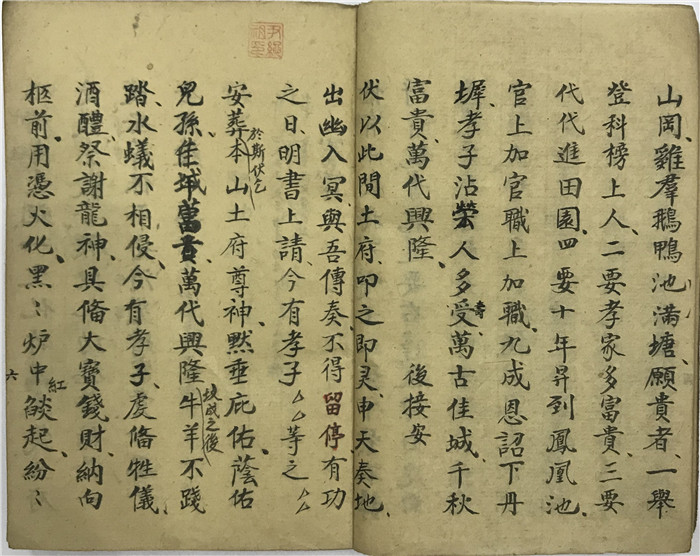 山岡、雞羣鵝鴨池滿塘、願貴者、一舉
登科榜上人、二要孝家多富貴、三要
代代進田園、四要十年昇到鳳凰池、
官上加官職上加職、九成恩詔下丹
墀、孝子沾榮人多受壽萬古佳城、千秋
富貴、萬代興隆、 後接安
伏以此間土府、叩之即灵、申天奏地、
出幽入冥、與吾傳奏、不得留停、有功
之日、明書上請、今有孝子厶厶等之厶厶
安葬於斯伏乞本山土府尊神、默垂庇佑、蔭佑
兒孫、佳城萬貴、萬代興隆、坟成之後牛羊不踐
踏、水蟻不相侵、今有孝子、虔俻牲儀、
酒醴、祭謝龍神、具俻大寶錢財、納向
柩前、用憑火化、黑〻炉中紅燄起、紛〻
六